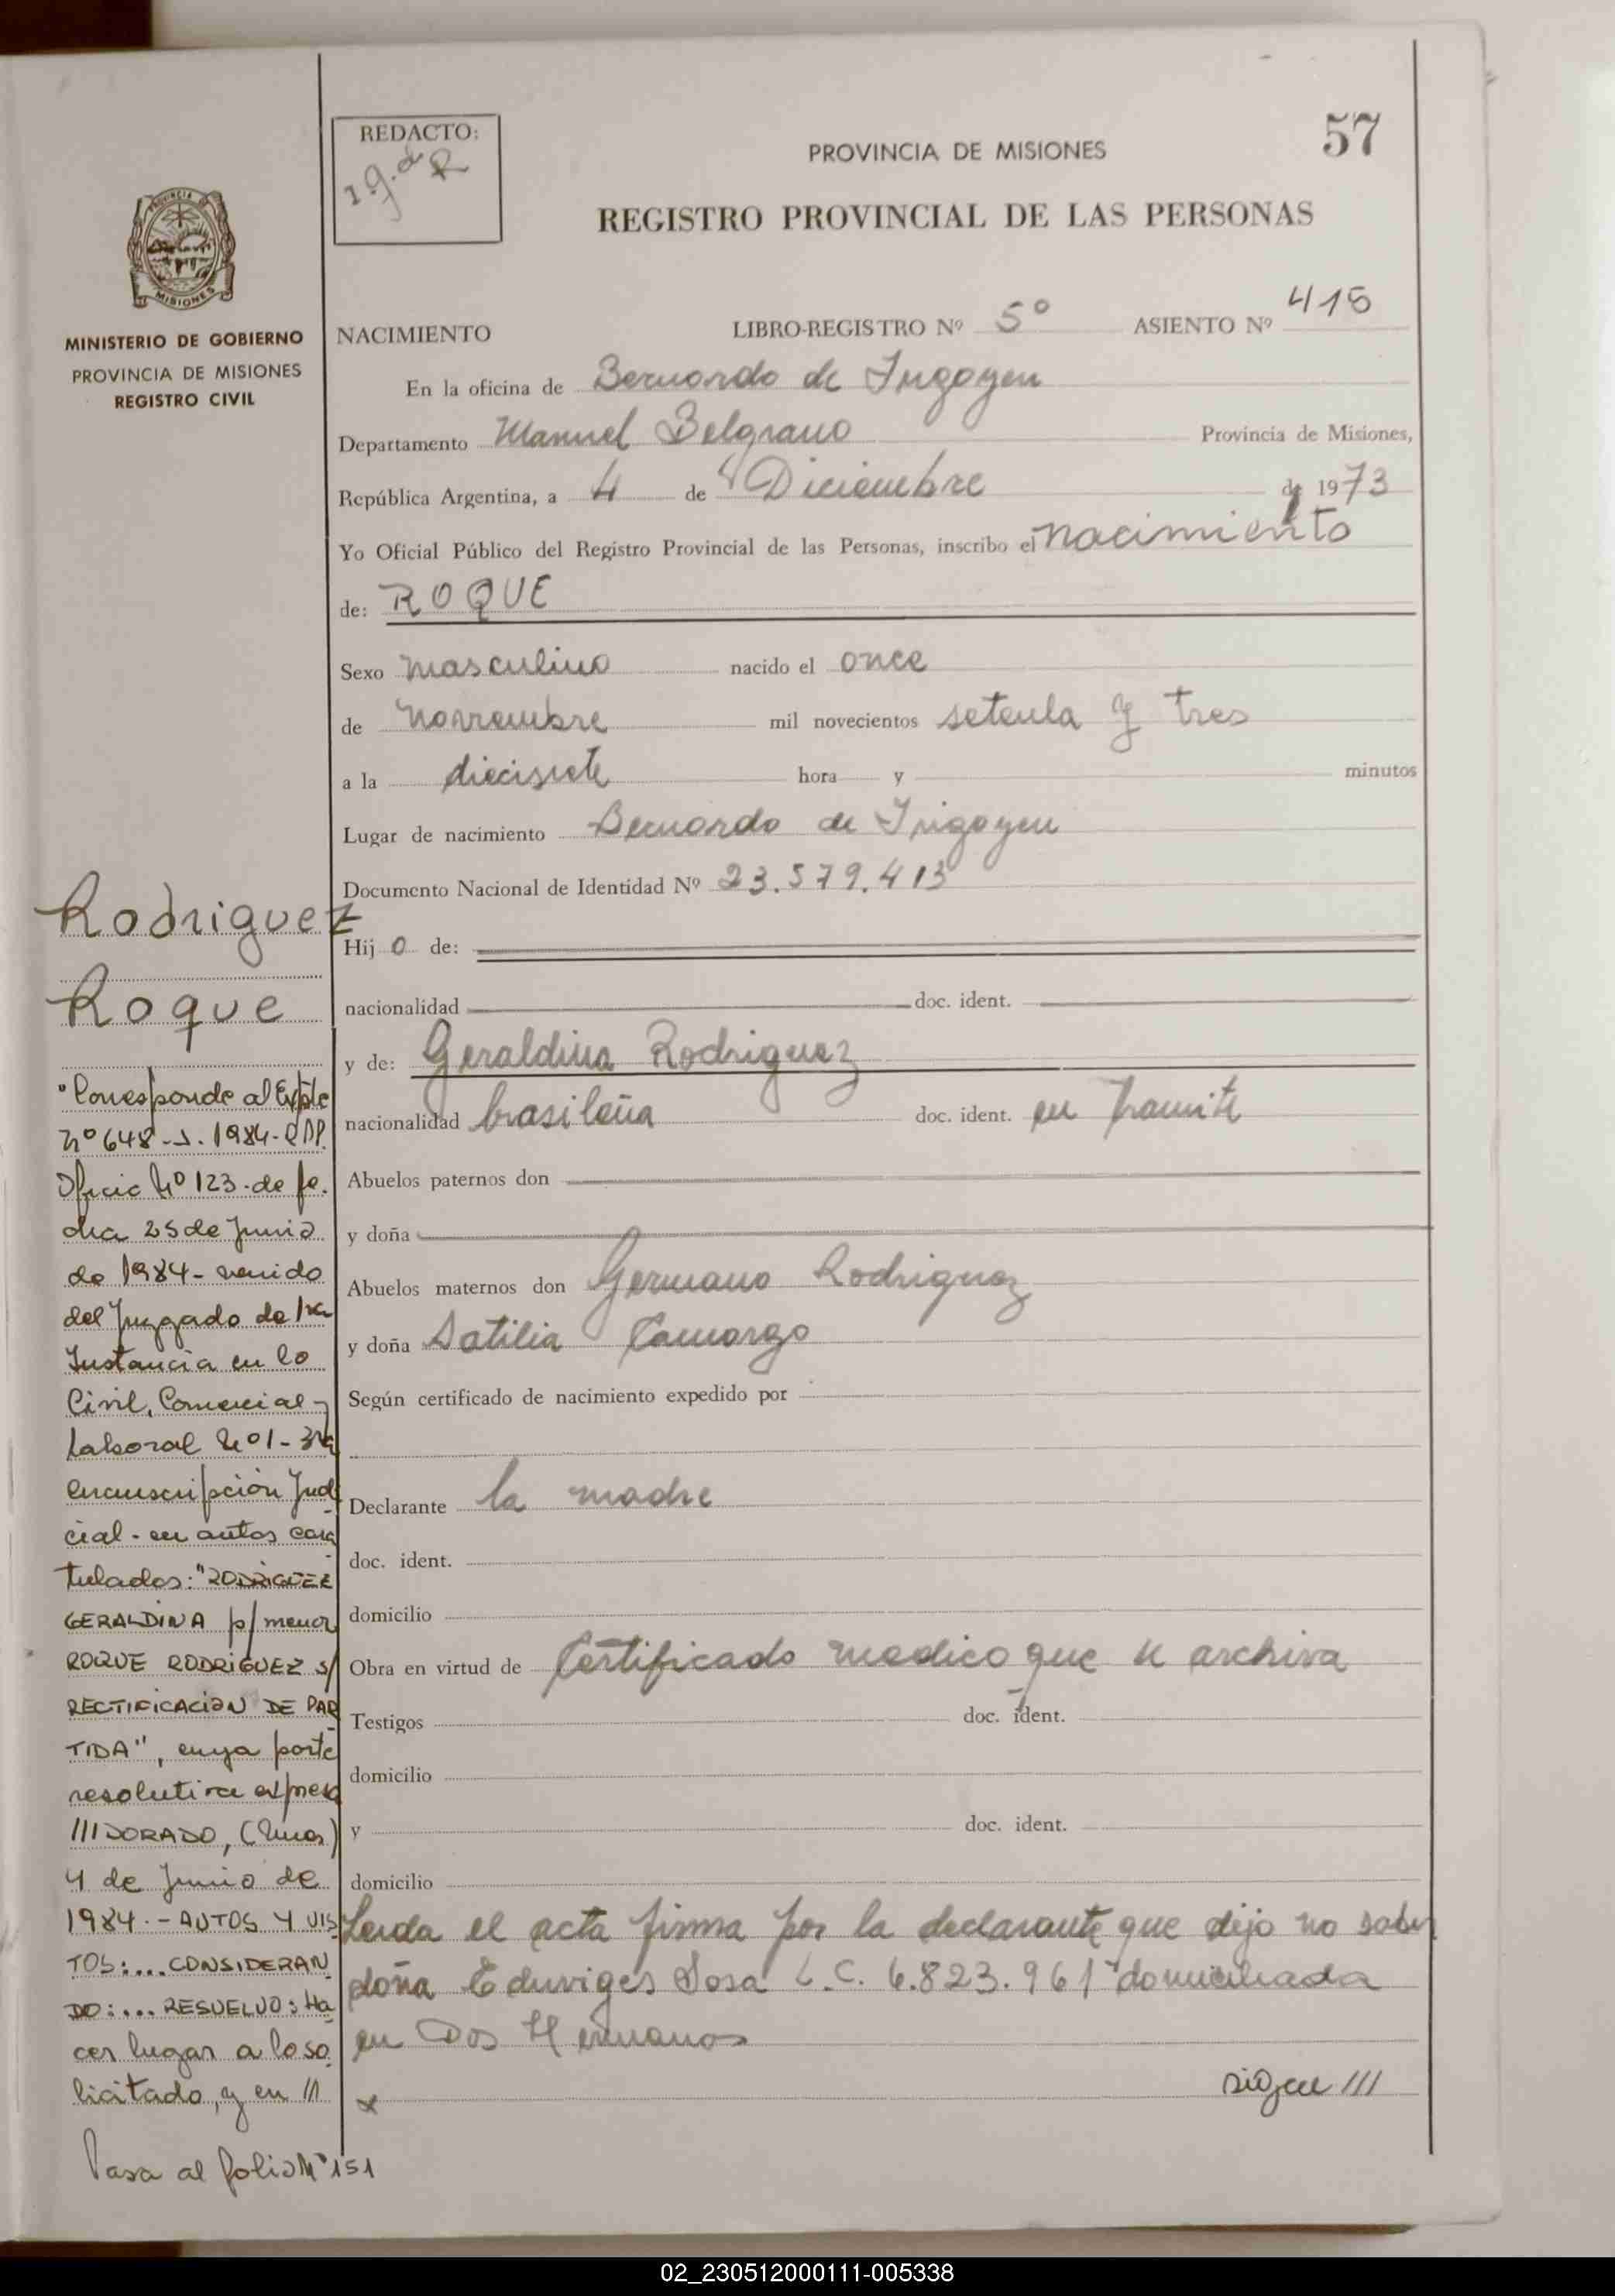 57
REDACTO:
PROVINCIA DE MISIONES
REGISTRO PROVINCIAL DE LAS PERSONAS
MISIONES
MINISTERIO DE GOBIERNO
PROVINCIA DE MISIONES
REGISTRO CIVIL
NACIMIENTO LIBRO-REGISTRO Nº 5º ASIENTO Nº 415
En la oficina de Bernardo de Irigoyen
Departamento Manuel Belgrano Provincia de Misiones,
República Argentina, a 4 de Diciembre de 1973
Yo Oficial Público del Registro Provincial de las Personas, inscribo el nacimiento
de: ROQUE
Sexo masculino nacido el once
de noviembre mil novecientos setenta y tres
a la diecisiete hora y minutos
Lugar de nacimiento Bernardo de Irigoyen
Documento Nacional de Identidad Nº 23.579.413
Hij o de:
nacionalidad doc. ident.
y de: Geraldina Rodriguez
nacionalidad brasileña doc. ident. en tramite
Abuelos paternos don
y doña
Abuelos maternos don Germano Rodriguez
y doña Satilia Camargo
Según certificado de nacimiento expedido por
Declarante la madre
doc. ident.
domicilio
Obra en virtud de Certificado medico que se archiva
Testigos doc. ident.
domicilio
y doc. ident.
domicilio
Leida el acta firma por la declarante que dijo no saber
doña Eduviges Sosa L.C. 6.823.961 domiciliada
en Dos Hermanos
sigue ///
Rodriguez
Roque
"Corresponde al Expte
Nº 648-J. 1984-RPP.
Oficio Nº 123-de fe.
cha 25 de Junio
de 1984- venido
del Juzgado de 1ra
Instancia en lo
Civil, Comercial y
Laboral Nº 1- 3ra
circunscripción Judi
cial- en autos cara
tulados: "RODRIGUEZ
GERALDINA p/menor
ROQUE RODRIGUEZ s/
RECTIFICACION DE PAR
TIDA", cuya parte
resolutiva expresa
///DORADO, (Mnes.)
4 de Junio de
1984.- AUTOS Y VIS
TOS:... CONSIDERAN
DO:... RESUELVO: Ha
cer lugar a lo so
licitado, y en ///
Pasa al folio Nº 151
02_230512000111-005338